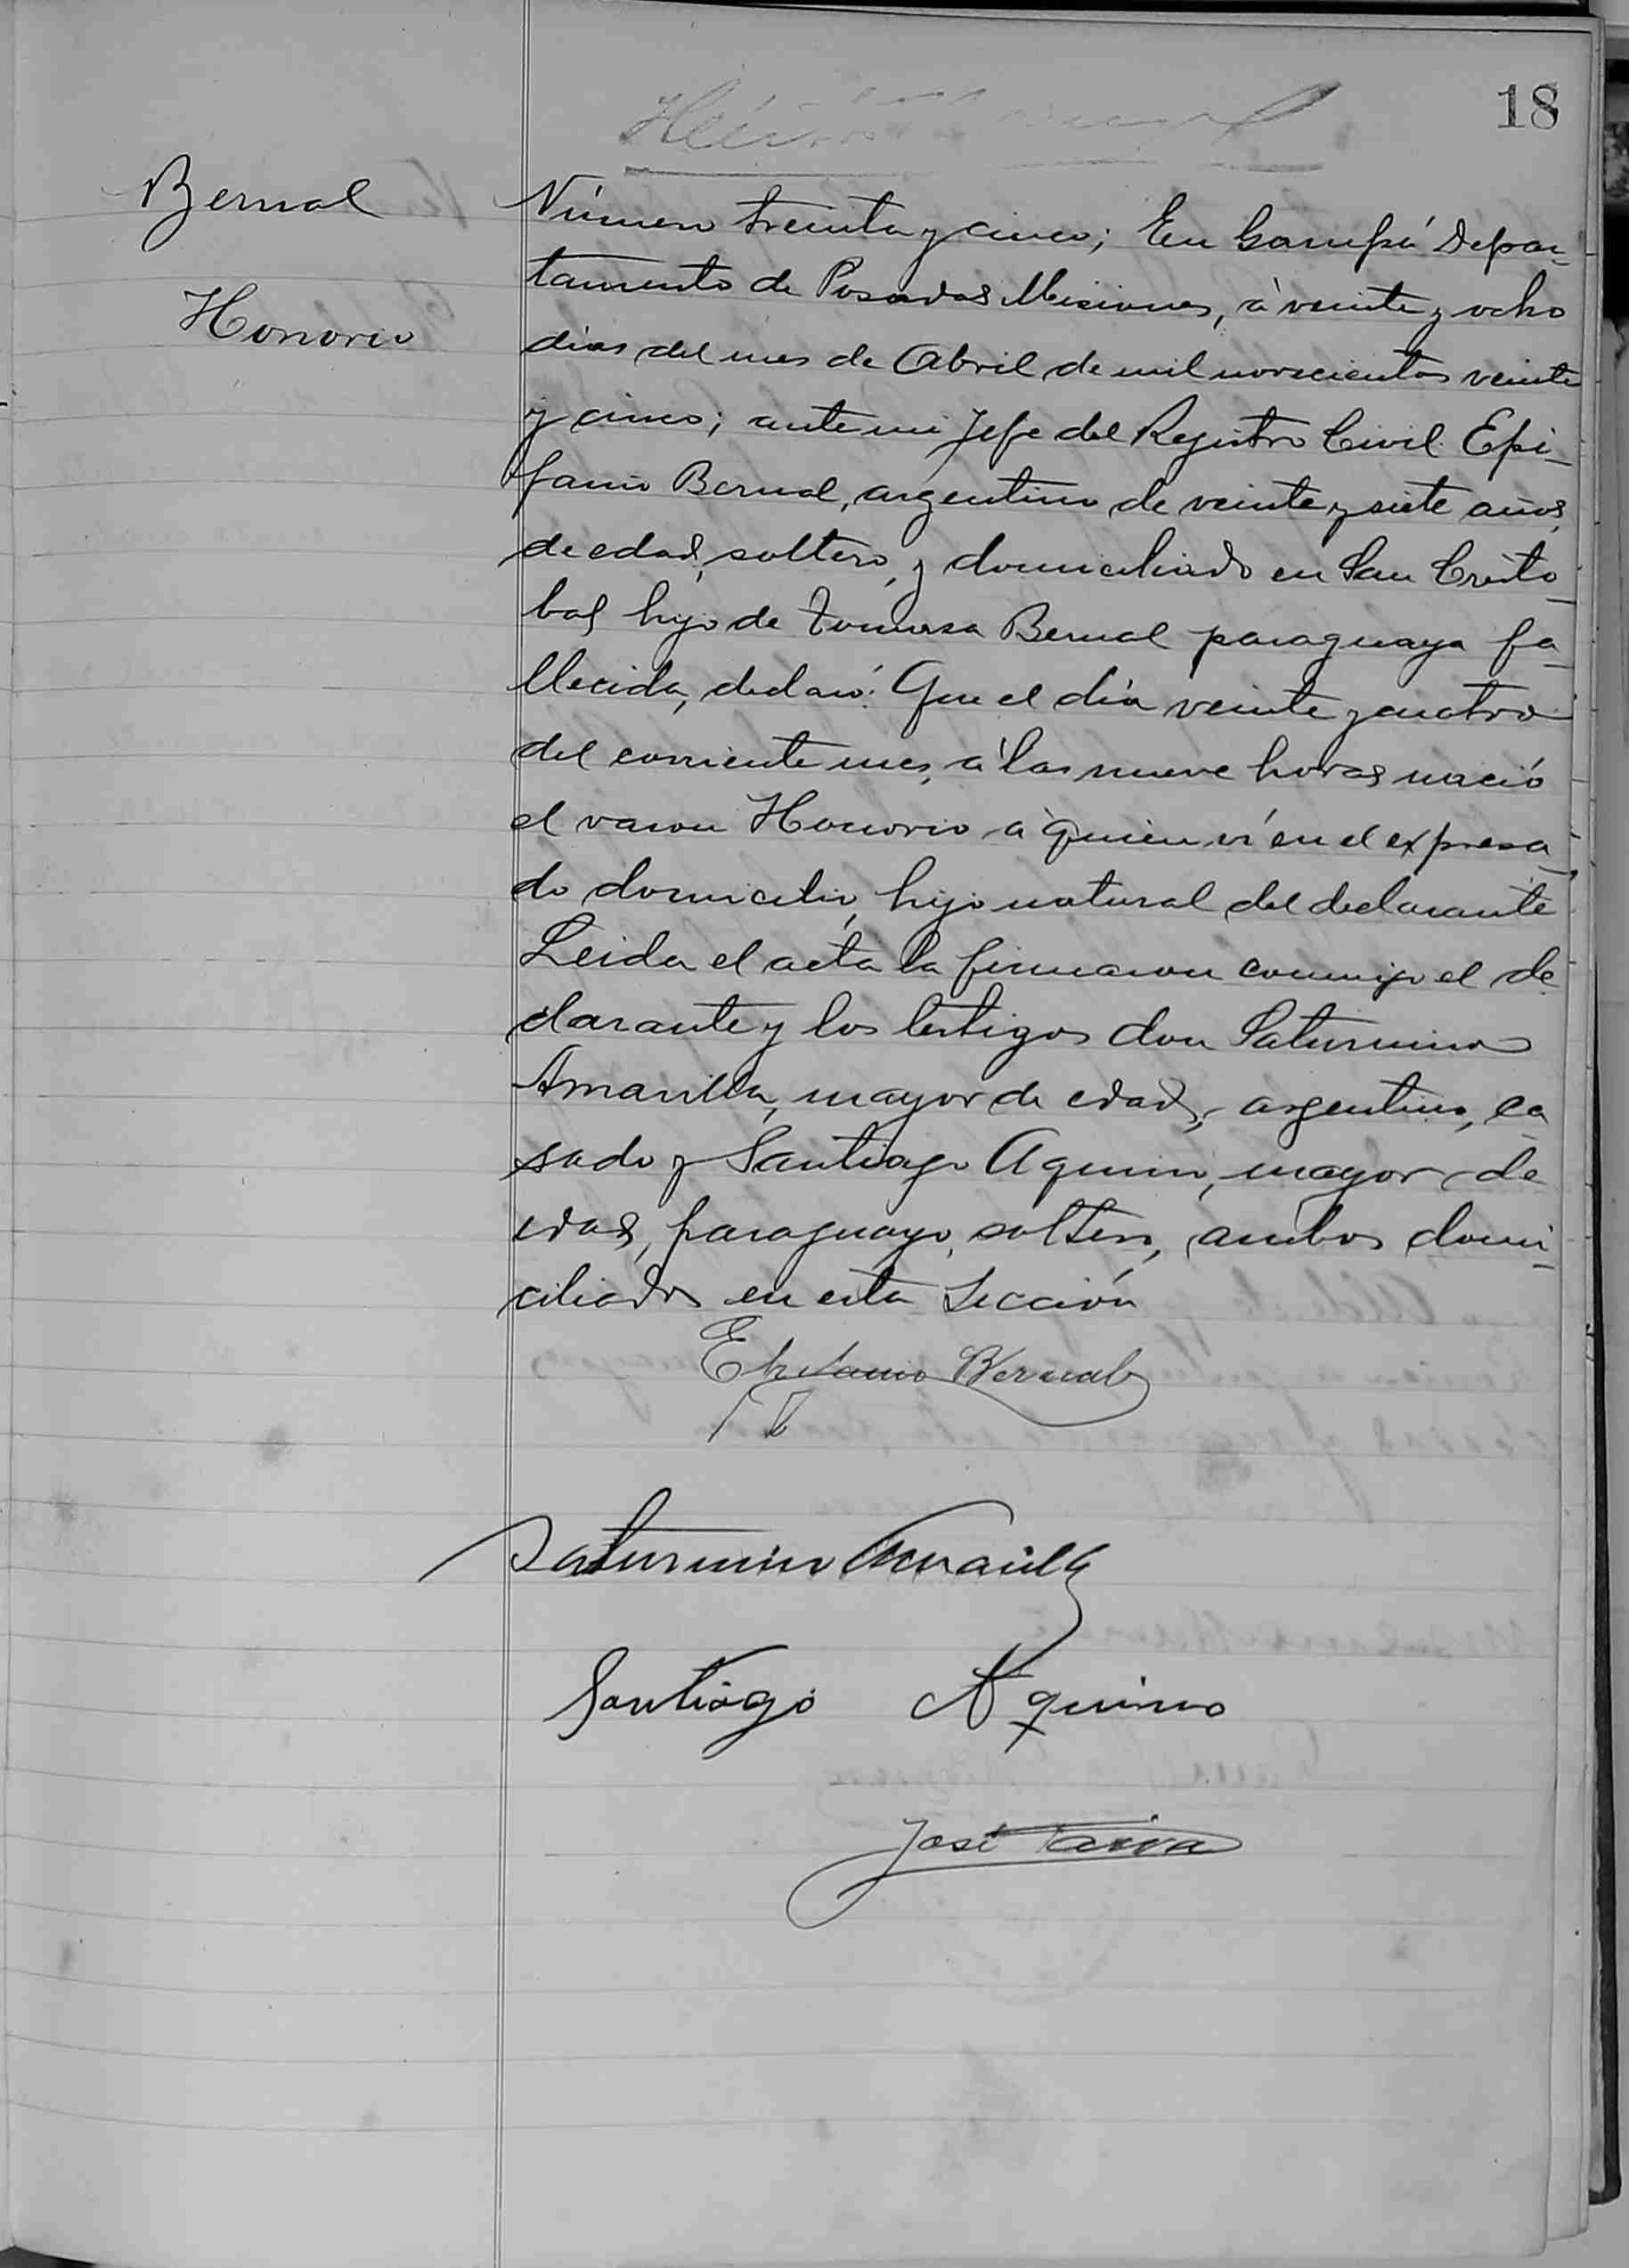 18
Bernal
Honorio
Número treinta y cinco; En Garupá Depar_
tamento de Posadas Misiones, à veinte y ocho
dias del mes de Abril de mil novecientos veinte
y cinco; ante mi Jefe del Registro Civil Epi_
fanio Bernal, argentino de veinte y siete años
de edad, soltero, y domiciliado en San Cristo_
bal hijo de Tomasa Bernal paraguaya fa_
llecida, declaró: Que el día veinte y cuatro
del corriente mes, a las nueve horas nació
el varon Honorio a quien ví en el expresa_
do domicilio, hijo natural del declarante
Leida el acta la firmaron conmigo el de
clarante y los testigos don Saturnino
Amarilla, mayor de edad, argentino, ca
sado y Santiago Aquino, mayor de
edad, paraguayo, soltero, ambos domi_
ciliados en esta Sección
Epifanio Bernal
Saturnino Amarilla
Santiago Aquino
José